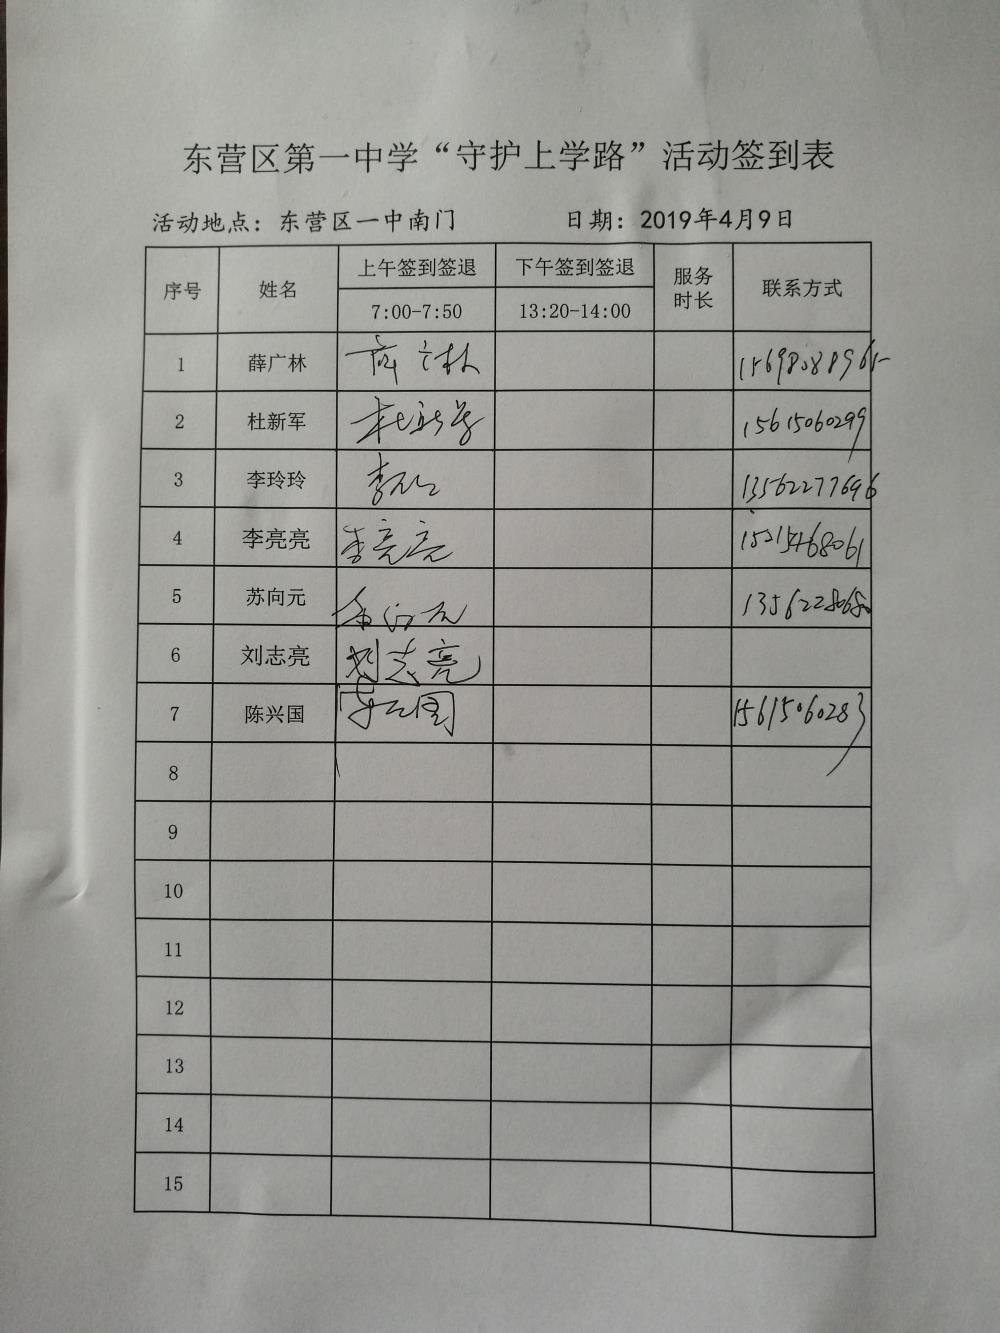 东营区第一中学“守护上学路”活动签到表
活动地点：东营区一中南门 日期：2019年4月9日
序号 姓名 上午签到签退 下午签到签退 服务时长 联系方式
7:00-7:50 13:20-14:00
1 薛广林 薛广林 15698088965
2 杜新军 杜新军 15615060299
3 李玲玲 李玲玲 13562277696
4 李亮亮 李亮亮
5 苏向元 苏向元
6 刘志亮 刘志亮
7 陈兴国 陈兴国 15615060283
8
9
10
11
12
13
14
15